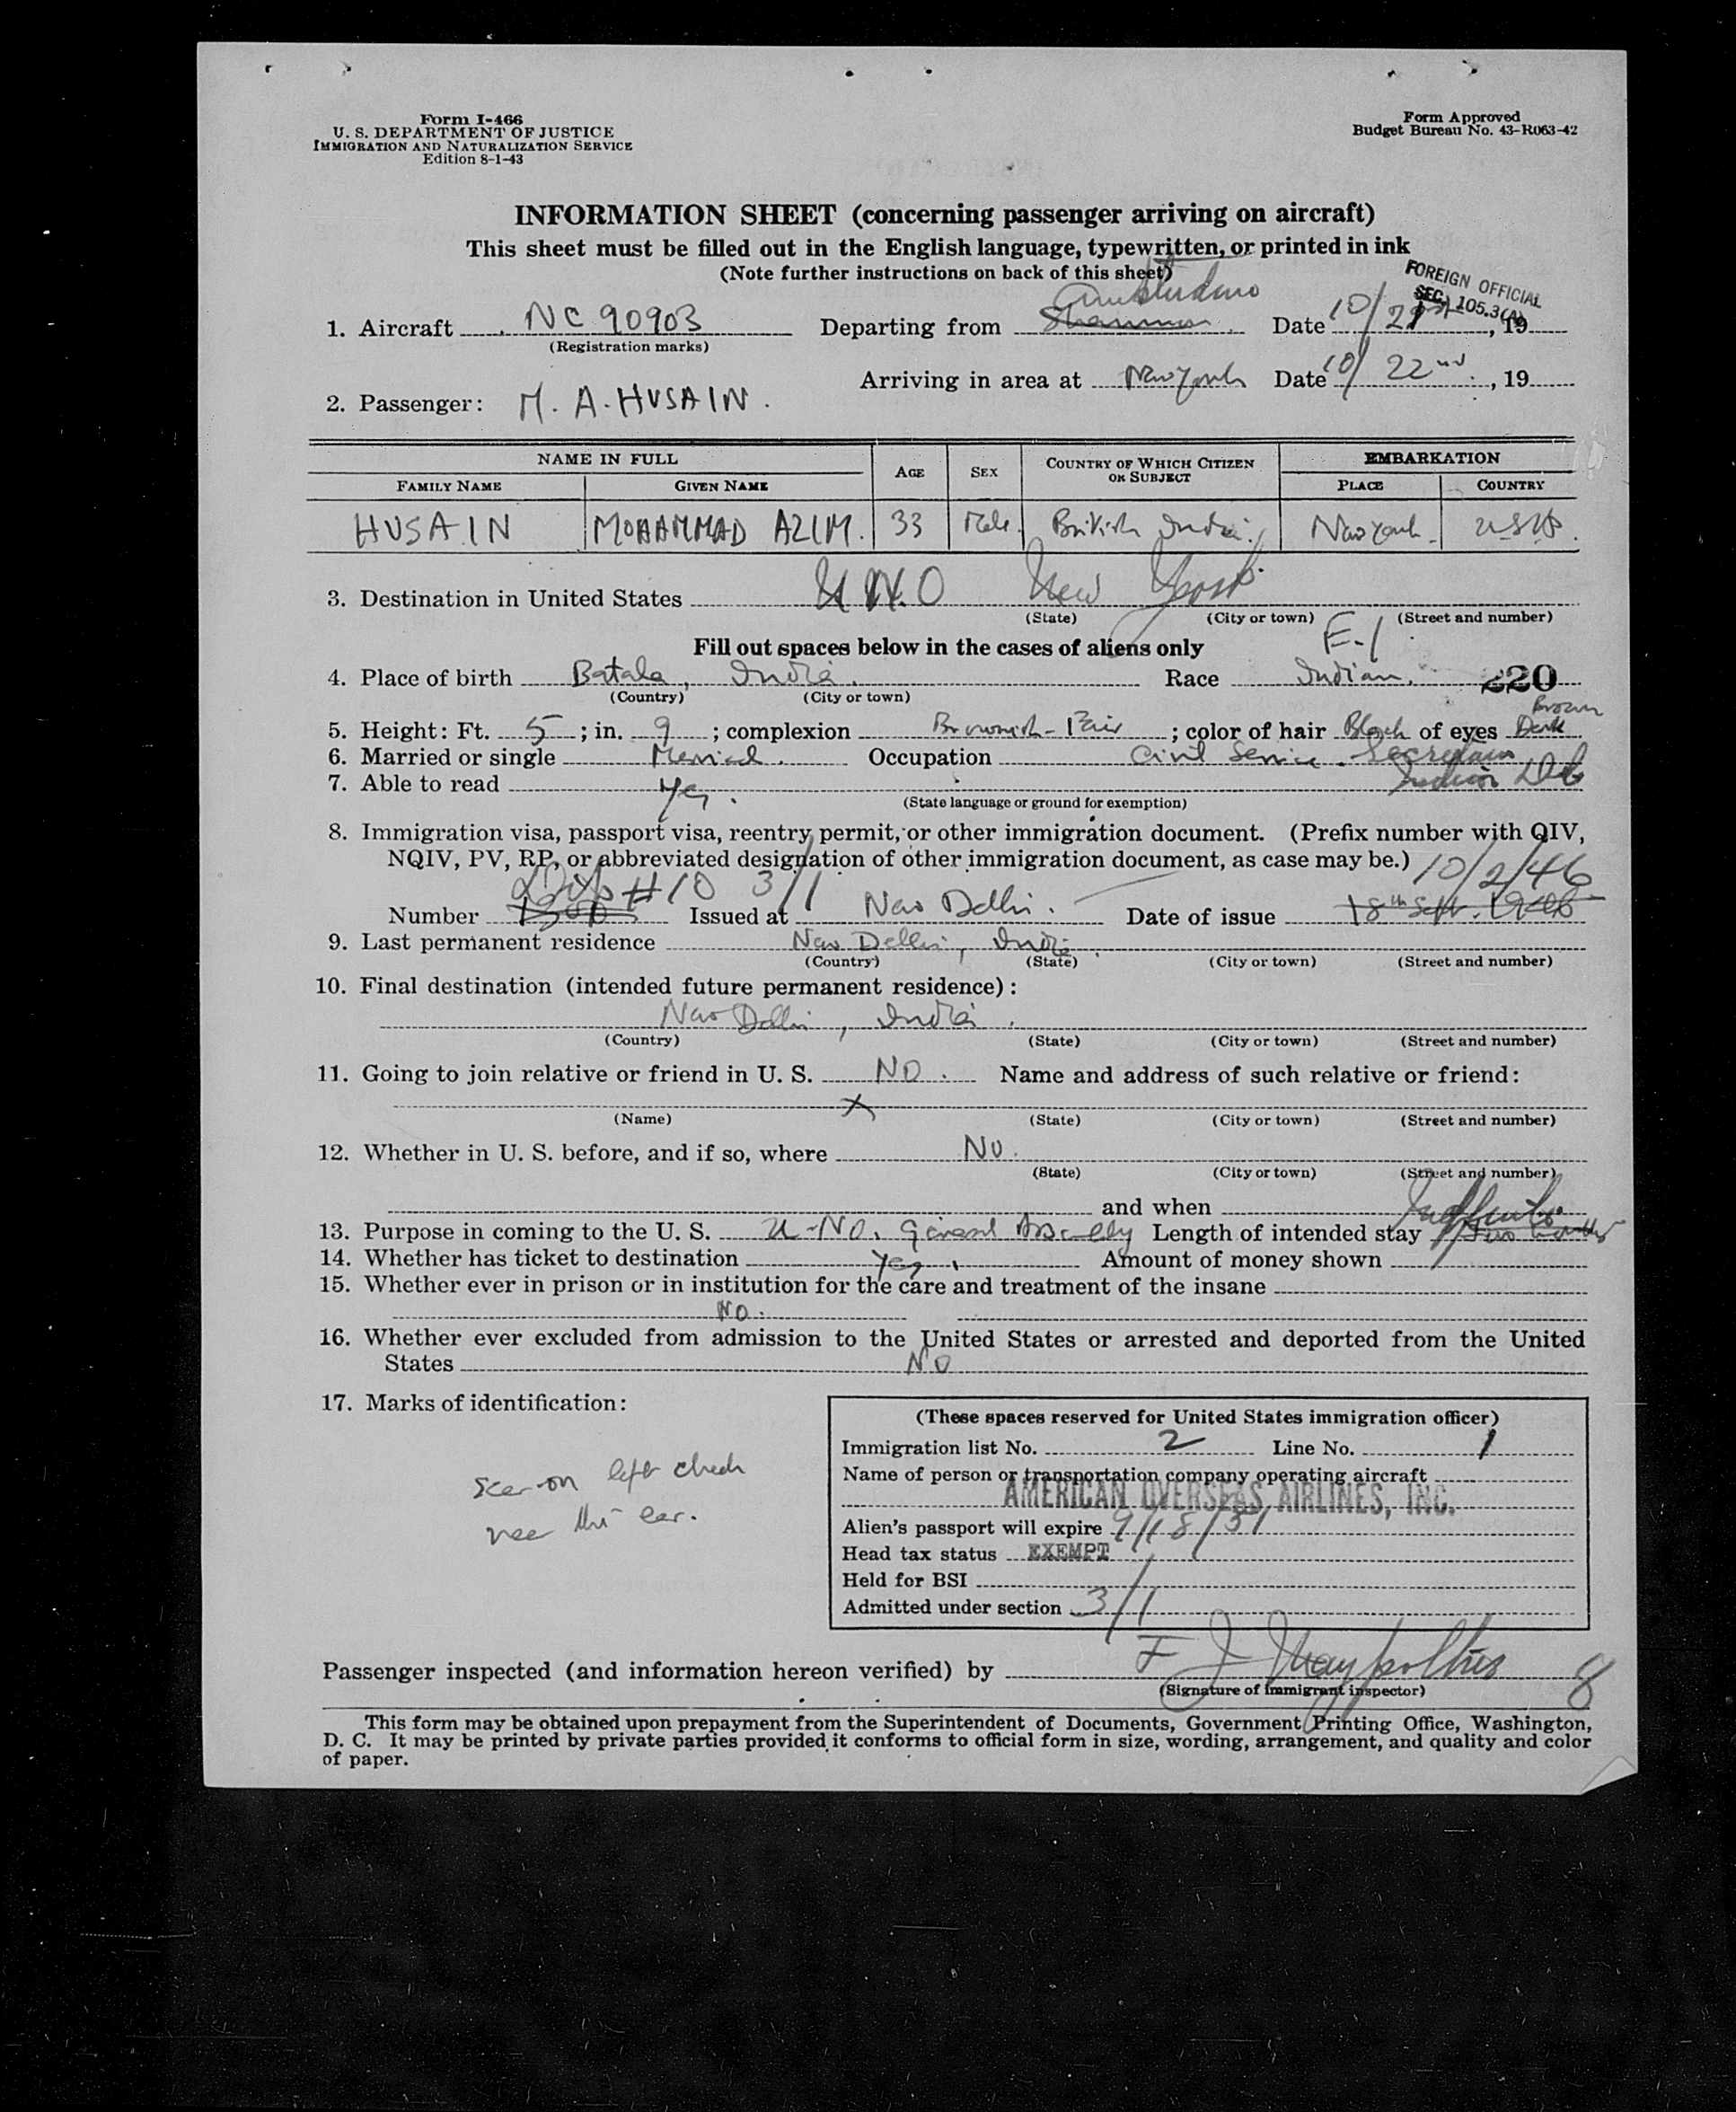 Form I-466
U. S. DEPARTMENT OF JUSTICE
IMMIGRATION AND NATURALIZATION SERVICE
Edition 8-1-43
Form Approved
Budget Bureau No. 43-R063-42
INFORMATION SHEET (concerning passenger arriving on aircraft)
This sheet must be filled out in the English language, typewritten, or printed in ink
(Note further instructions on back of this sheet)
FOREIGN OFFICIAL
SEC. 105.3(A)
Amsterdam
1. Aircraft NC 90903 Departing from Shannon Date 10/21st, 19
(Registration marks)
Arriving in area at New York Date 10/22nd, 19
2. Passenger: M. A. HUSAIN.
NAME IN FULL AGE SEX COUNTRY OF WHICH CITIZEN OR SUBJECT EMBARKATION
FAMILY NAME GIVEN NAME PLACE COUNTRY
HUSAIN MOHAMMAD AZIM. 33 Male. British India. New York USA.
3. Destination in United States UNO New York
(State) (City or town) (Street and number)
Fill out spaces below in the cases of aliens only E-1
4. Place of birth Batala, India. Race Indian. 220
(Country) (City or town)
brown
5. Height: Ft. 5; in. 9; complexion Brownish-Fair; color of hair Black of eyes Dark
6. Married or single Married. Occupation Civil Service. Secretary
Indian Del
7. Able to read Yes.
(State language or ground for exemption)
8. Immigration visa, passport visa, reentry permit, or other immigration document. (Prefix number with QIV,
NQIV, PV, RP, or abbreviated designation of other immigration document, as case may be.) 10/2/46
Dip #10 3/1
Number Issued at New Delhi. Date of issue 18th Sept. 1946
9. Last permanent residence New Delhi, India.
(Country) (State) (City or town) (Street and number)
10. Final destination (intended future permanent residence):
New Delhi, India.
(Country) (State) (City or town) (Street and number)
11. Going to join relative or friend in U. S. NO. Name and address of such relative or friend:
X
(Name) (State) (City or town) (Street and number)
12. Whether in U. S. before, and if so, where No.
(State) (City or town) (Street and number)
and when
Indefinite
13. Purpose in coming to the U. S. U-NO. General Assembly Length of intended stay Two months
14. Whether has ticket to destination Yes. Amount of money shown
15. Whether ever in prison or in institution for the care and treatment of the insane
NO.
16. Whether ever excluded from admission to the United States or arrested and deported from the United
States NO
17. Marks of identification:
Scar on left cheek
near the ear.
(These spaces reserved for United States immigration officer)
Immigration list No. 2 Line No. 1
Name of person or transportation company operating aircraft
AMERICAN OVERSEAS AIRLINES, INC.
Alien's passport will expire 9/18/51
Head tax status EXEMPT
Held for BSI
Admitted under section 3/1
Passenger inspected (and information hereon verified) by F J 8
(Signature of immigrant inspector)
This form may be obtained upon prepayment from the Superintendent of Documents, Government Printing Office, Washington,
D. C. It may be printed by private parties provided it conforms to official form in size, wording, arrangement, and quality and color
of paper.